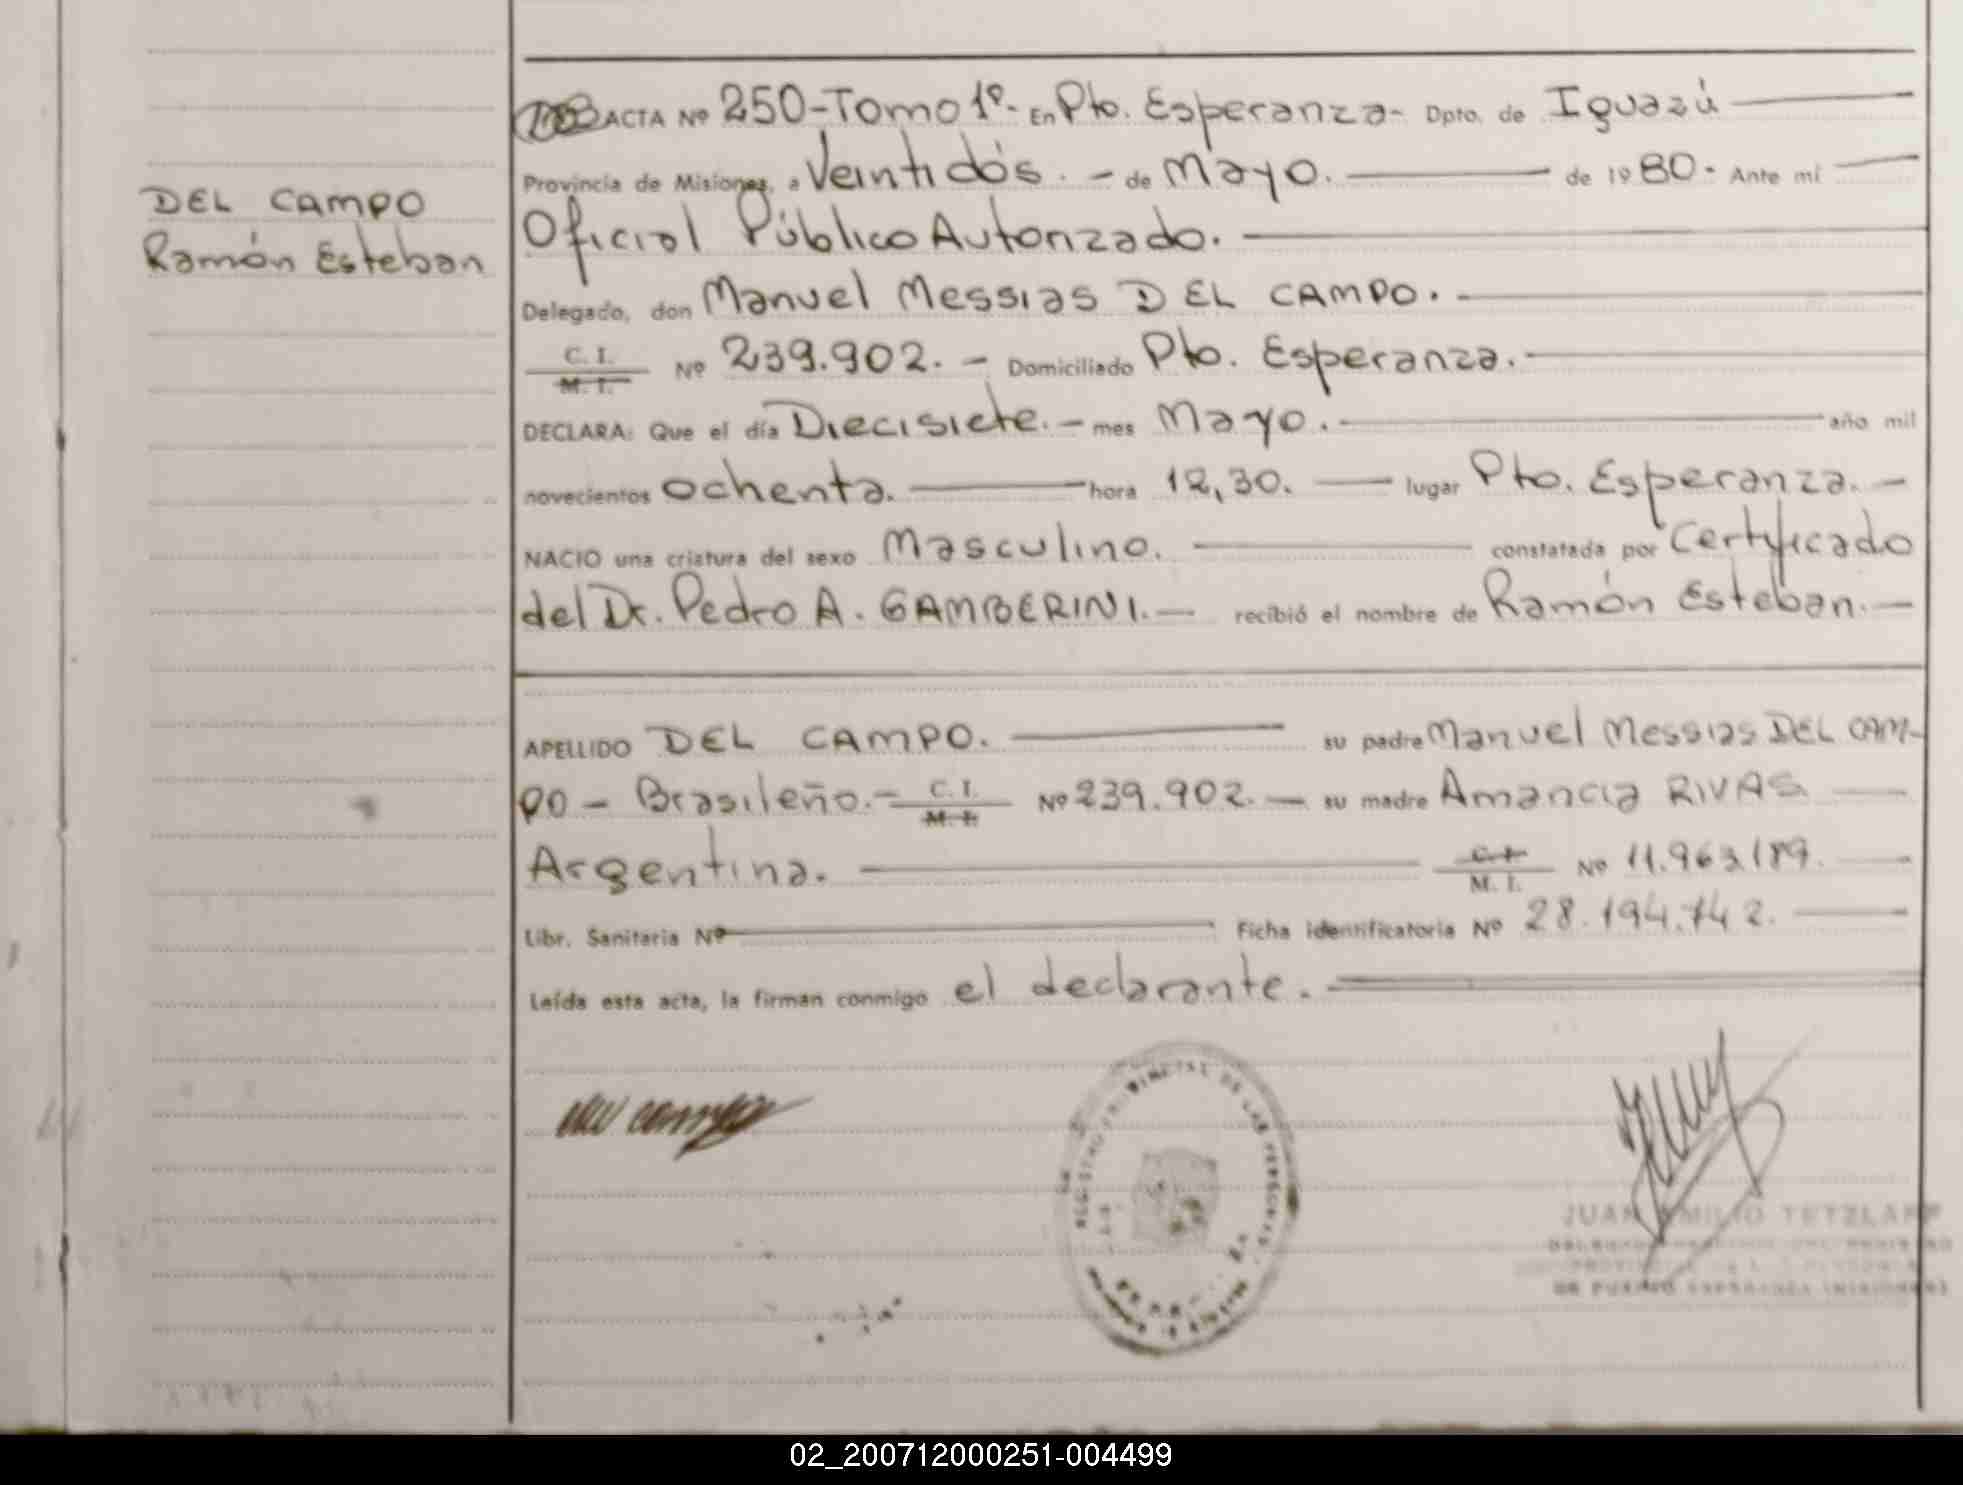 DEL CAMPO
Ramón Esteban
ACTA Nº 250-Tomo 1º- En Pto. Esperanza- Dpto. de Iguazú
Provincia de Misiones, a Veintidós. - de Mayo. de 1980- Ante mí
Oficial Público Autorizado.
Delegado, don Manuel Messias DEL CAMPO.
C. I.
M. I. Nº 239.902. - Domiciliado Pto. Esperanza.
DECLARA: Que el día Diecisiete. - mes Mayo. año mil
novecientos ochenta. hora 12,30. lugar Pto. Esperanza. -
NACIO una criatura del sexo Masculino. constatada por Certificado
del Dr. Pedro A. GAMBERINI. - recibió el nombre de Ramón Esteban. -
APELLIDO DEL CAMPO. su padre Manuel Messias DEL CAM-
PO - Brasileño. - C. I.
M. I. Nº 239.902. - su madre Amancia RIVAS
Argentina. C. I.
M. I. Nº 11.963.189.
Libr. Sanitaria Nº Ficha identificatoria Nº 28.194.742.
Leída esta acta, la firman conmigo el declarante.
JUAN EMILIO TETZLAFF
DE PUERTO ESPERANZA (MISIONES)
02_200712000251-004499